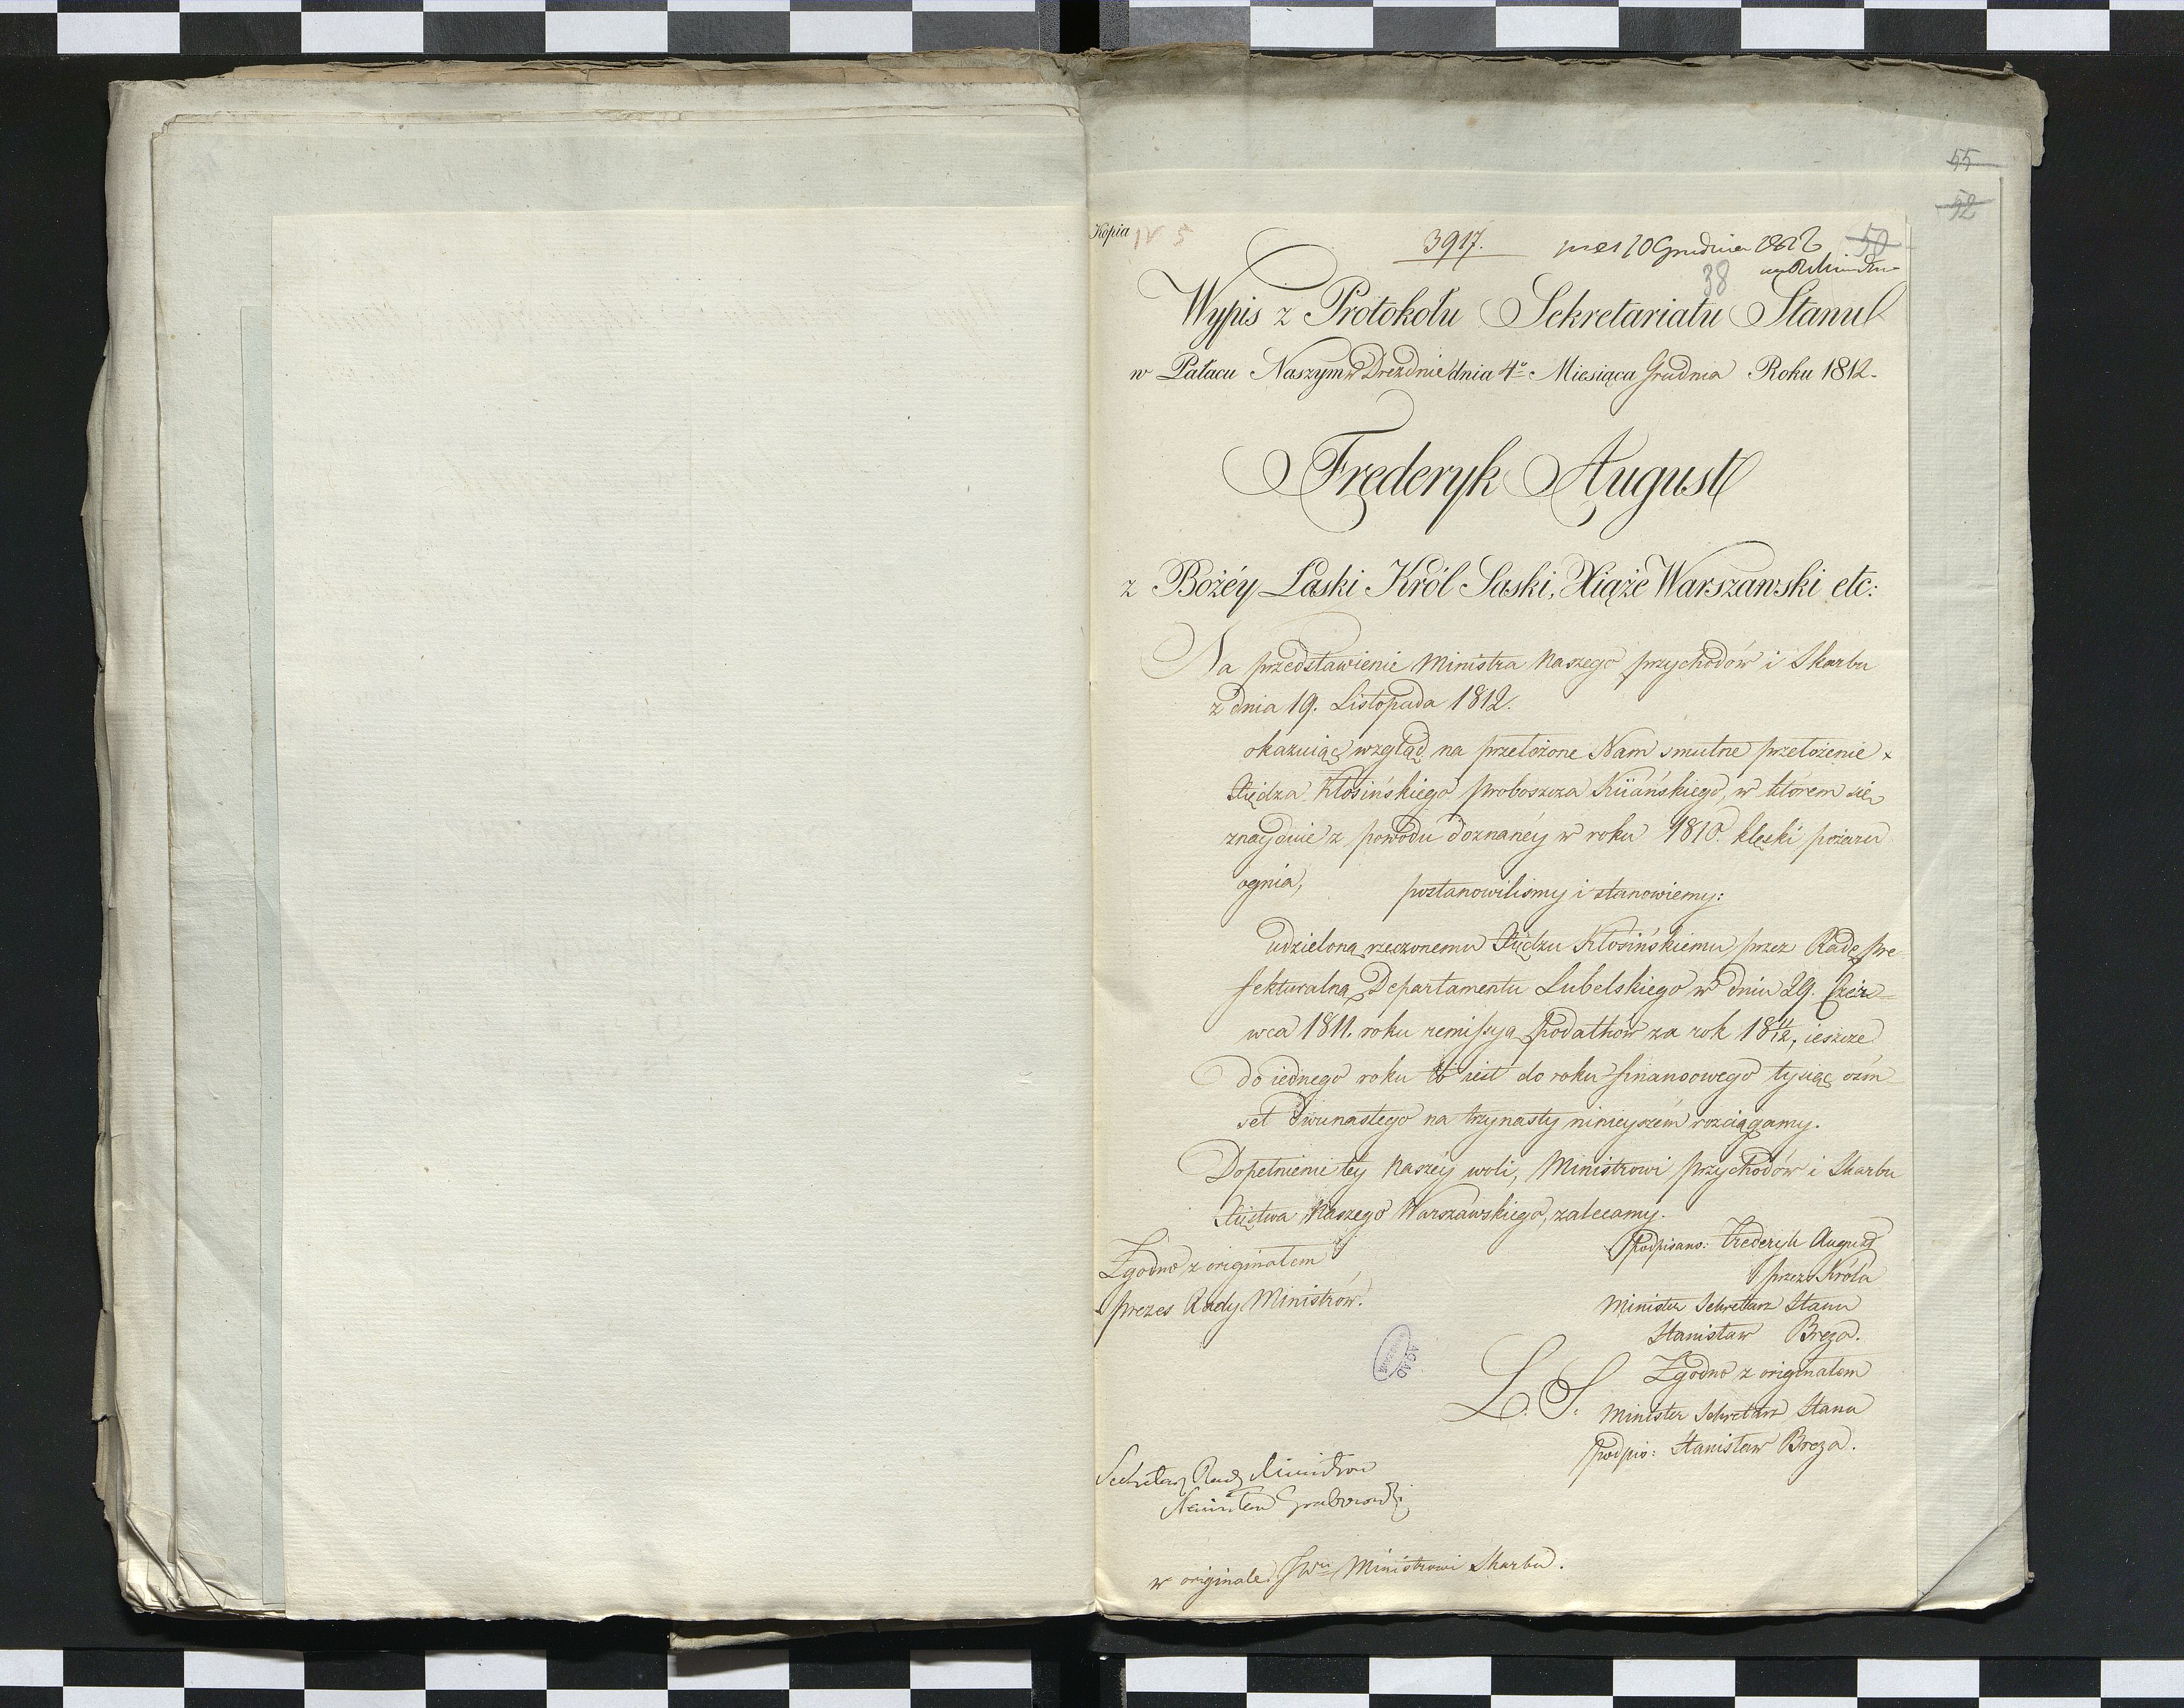 55
52
Kopia IV 5
3917. 10 Grudnia 1812 50
38
Wypis z Protokołu Sekretariatu Stanu
w Pałacu Naszym w Dreźnie dnia 4º Miesiąca Grudnia Roku 1812.
Frederyk August
z Bożéy Łaski Król Saski, Xiąże Warszawski etc:
Na przedstawienie Ministra Naszego przychodów i Skarbu
z dnia 19. Listopada 1812.
okazuiąc wzgląd na przełożone Nam smutne przełożenie x
Xiędza Kłosińskiego proboszcza Kiiańskiego, w którem się
znayduie z powodu doznanéy w roku 1810. klęski pożaru
ognia, postanowilismy i stanowiemy:
udzieloną rzeczonemu Xiędzu Kłosińskiemu przez Radę pre
fekturalną Departamentu Lubelskiego w dniu 29. Czer=
wca 1811. roku remissyą podatków za rok 18 11/12, ieszcze
do iednego roku to iest do roku finansowego tysiąc ośm
set dwunastego na trzynasty ninieyszém rozciągamy.
Dopełnienie téy Naszéy woli, Ministrowi przychodów i Skarbu
Xięstwa Naszego Warszawskiego, zalecamy.
podpisano: Frederyk August
przez Króla
Minister Sekretarz Stanu
Stanisław Breza.
Zgodno z originałem
prezes Rady Ministrów.
AGAD
L. S. Zgodno z originałem
Minister Sekretarz Stanu
podpis: Stanisław Breza.
Sekretarz Rady Ministrow
Stanisław Grabowski
w originale JWu Ministrowi Skarbu.